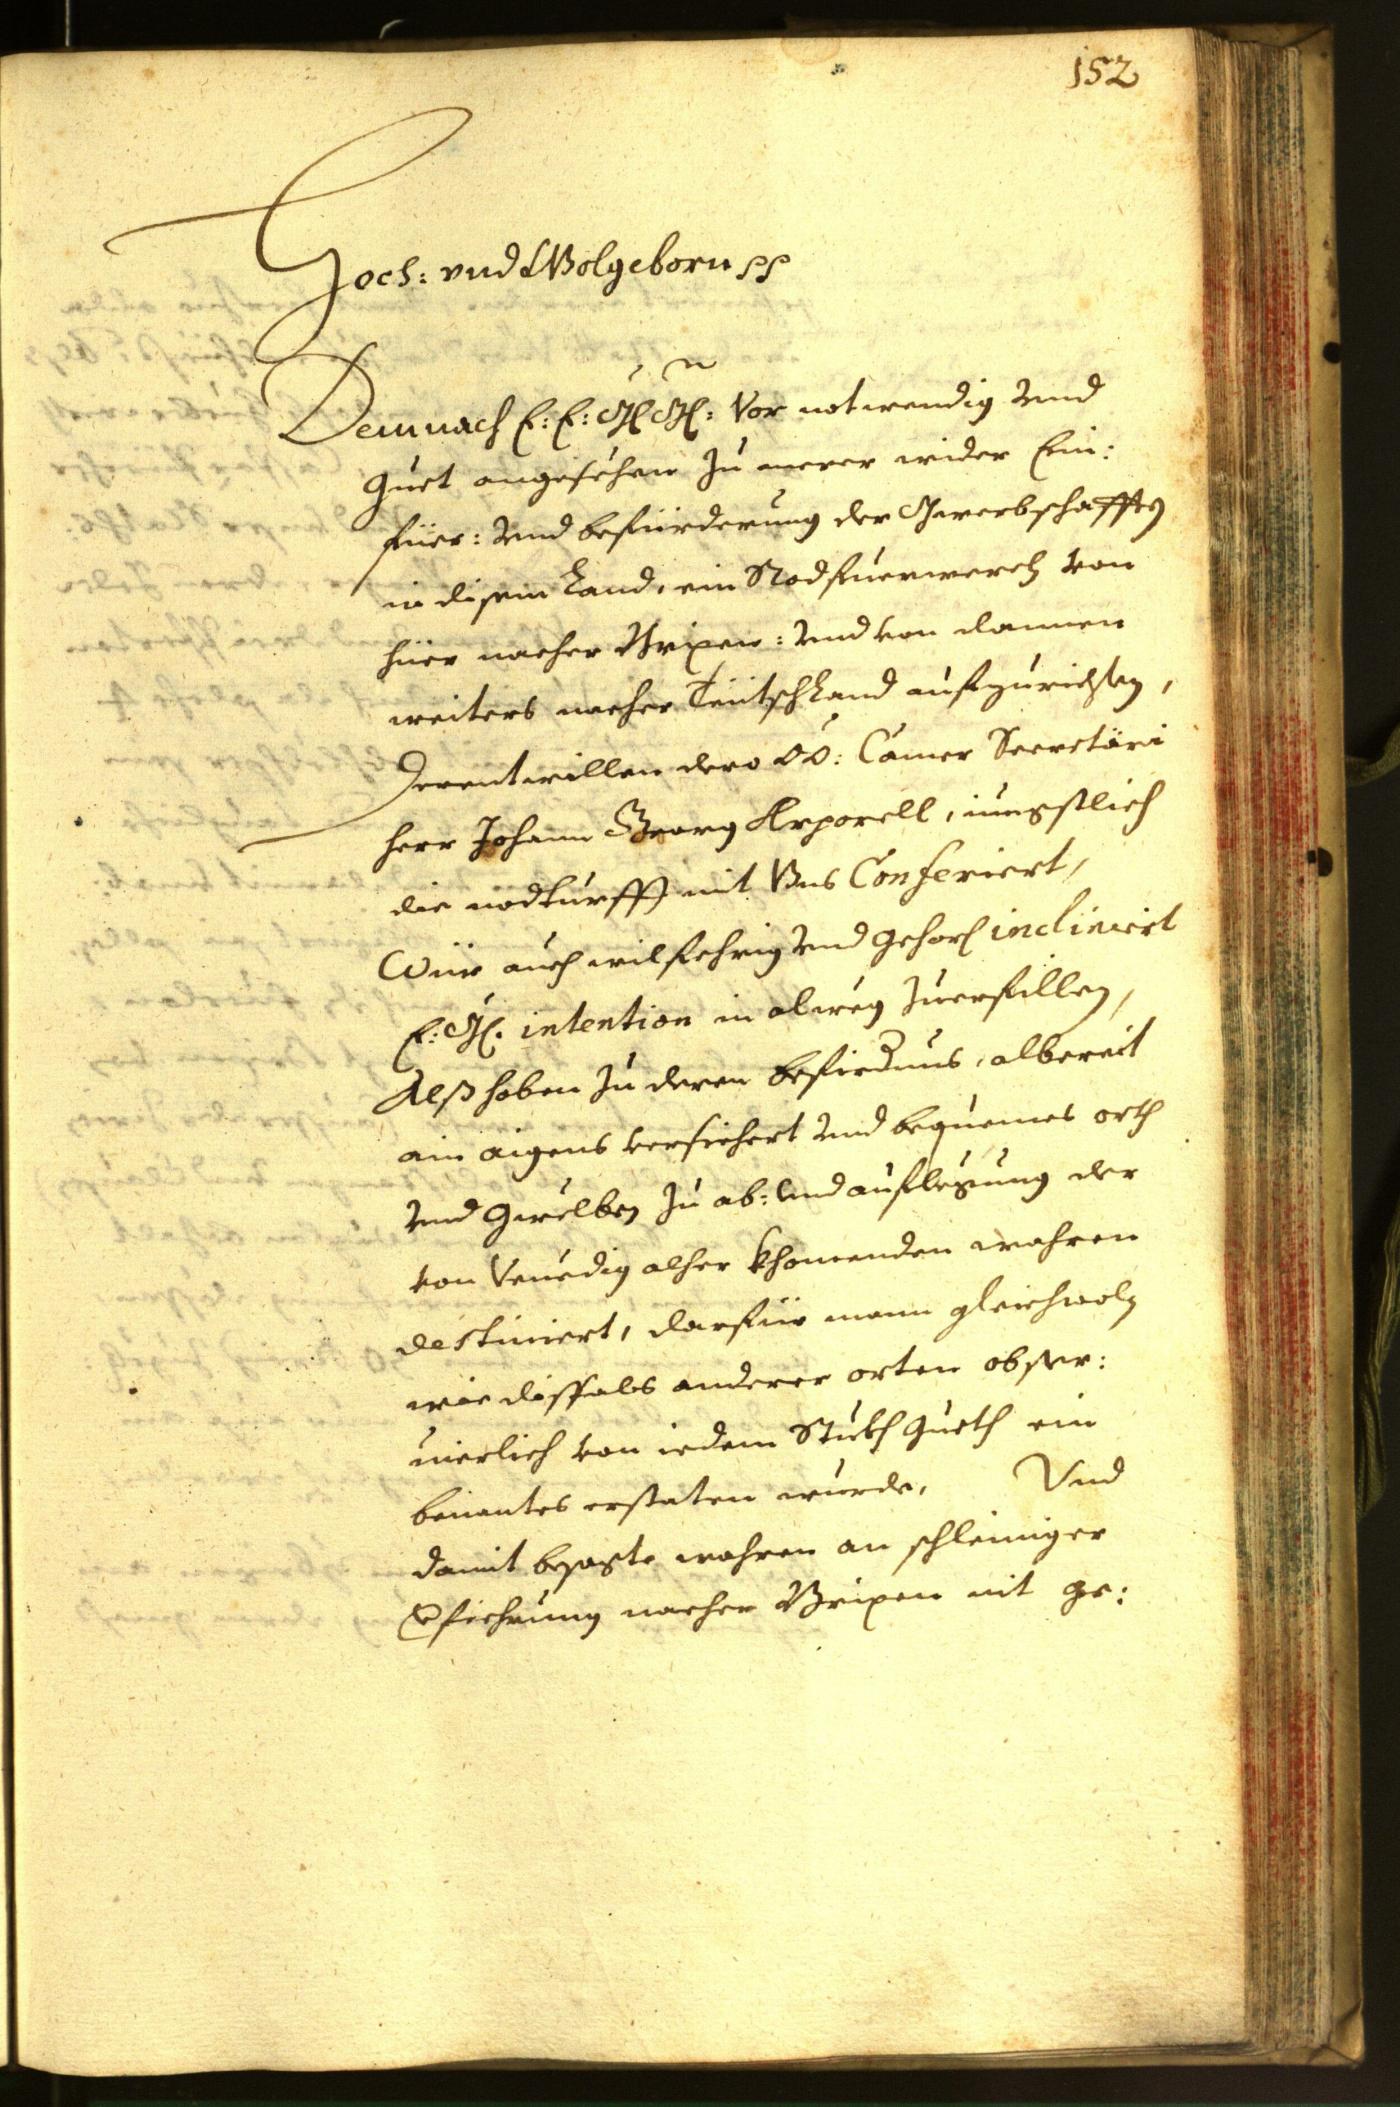 152
Hoch: vnd Wolgeborn pp
Demnach E: E: Gl Gl: vor notwendig vnd
guet angesehen zu merer wider Ein:
füer: vnd befürderung der Gwerbschafften
in disem Land, ein Rodfuerwerch von
hier nacher Brixen: vnd von dannen
weiters nacher Teütschland aufzurichten,
Derentwillen dero OÖ: Camer Secretäri
herr Johann Georg, iungstlich
die nodturfft mit Vns Conferiert,
Wür auch wilfehrig vnd gehors incliniert
E: Gl. intention in alweg zuerfillen,
Alß haben zu deren befirdnus, albereit
ain aigens versichert vnd bequemes orth
vnd Gwelben zu ab: vnd auflegung der
von Venedig alher khomenden wahren
destiniert, darfür mann gleichwoln
wie dißfals anderer orten obser:
uierlich von iedem Stukh Gueth ein
benantes erstaten wurde, Vnd
damit besagte wahren an schleiniger
Verfiehrung nacher Brixen nit ge: